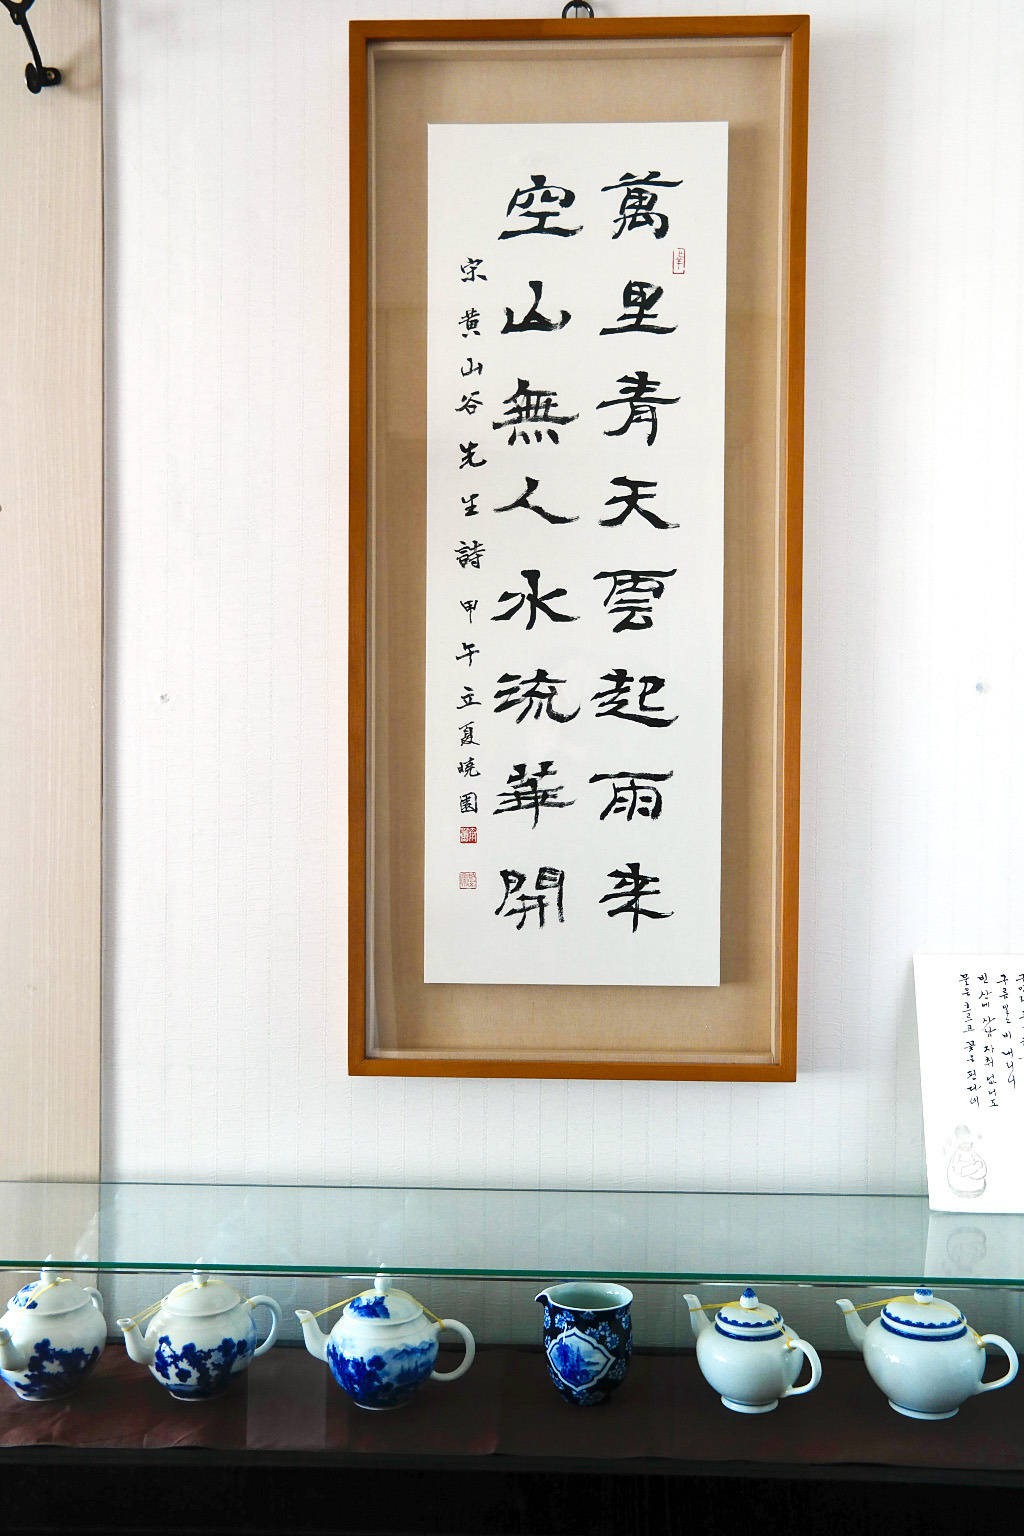 萬里青天雲起雨来
空山無人水流華開
宋黄山谷先生詩 甲午立夏曉園
구름일고 비 내리니
빈 산에 사람 자취 없어도
물은 흐르고 꽃은 핀다네